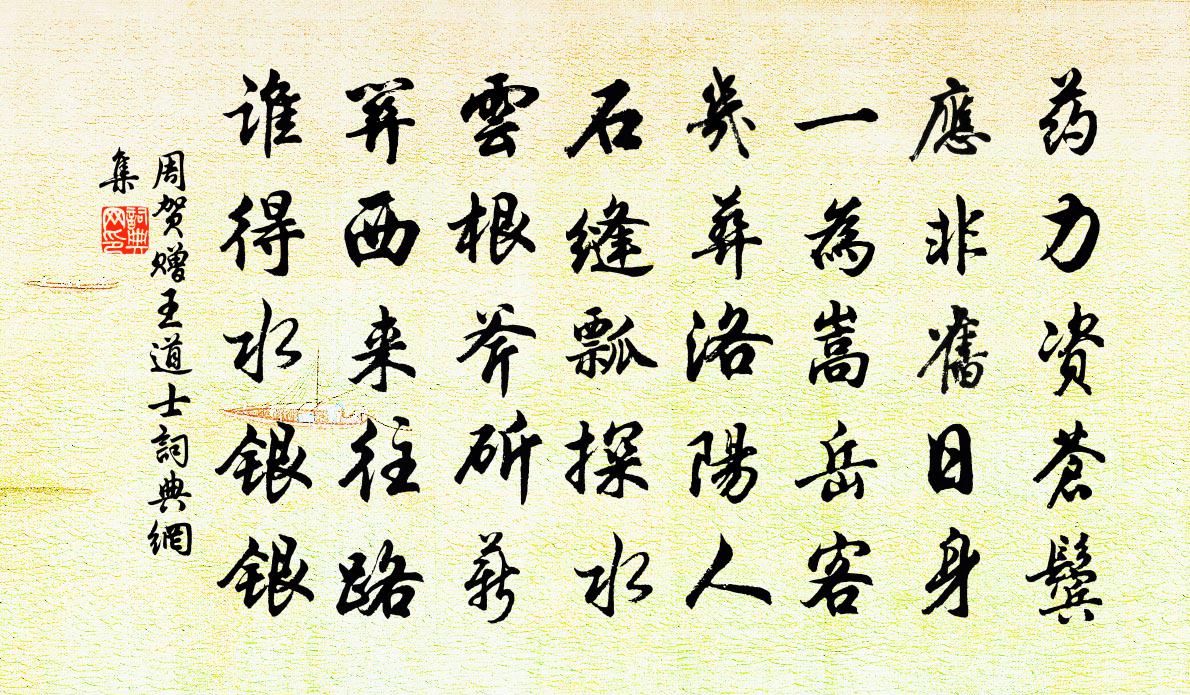 药力资蒼鬓
應非舊日身
一為嵩岳客
幾葬洛陽人
石縫瓢探水
雲根斧斫薪
関西来往路
谁得水银银
周贺赠王道士詞典網
集
詞典网印